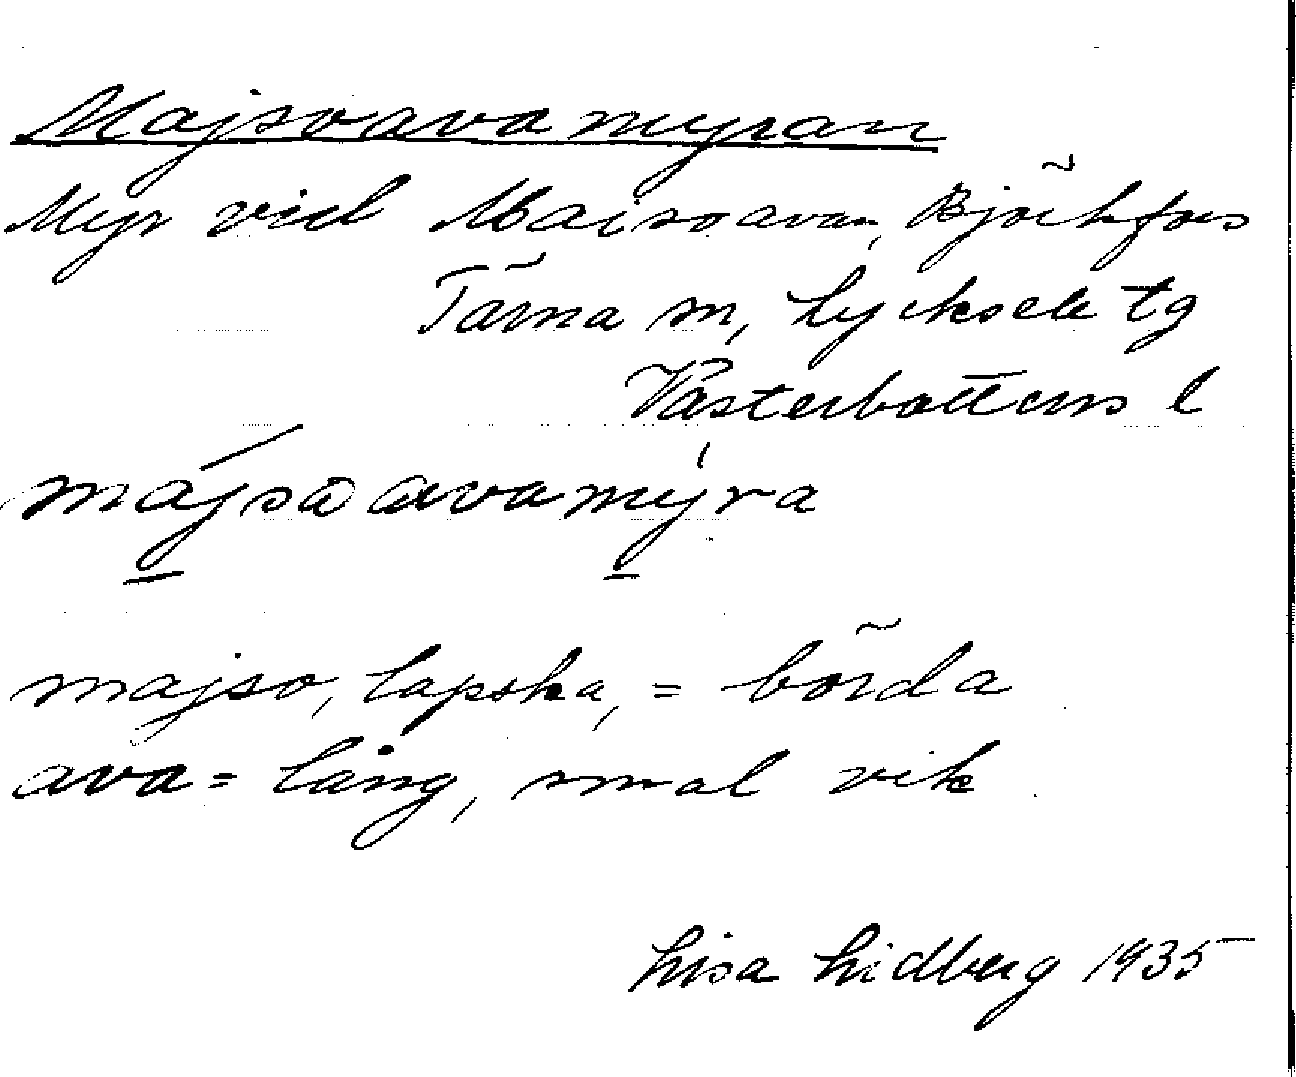 Majsoavamyran
Myr vid Maisoavan, Björkfors
Tärna sn, Lycksele tg
Västerbottens l
májsoavamýra
majso, lapska, = börda
ava = lång, smal vik
Lisa Lidberg 1935